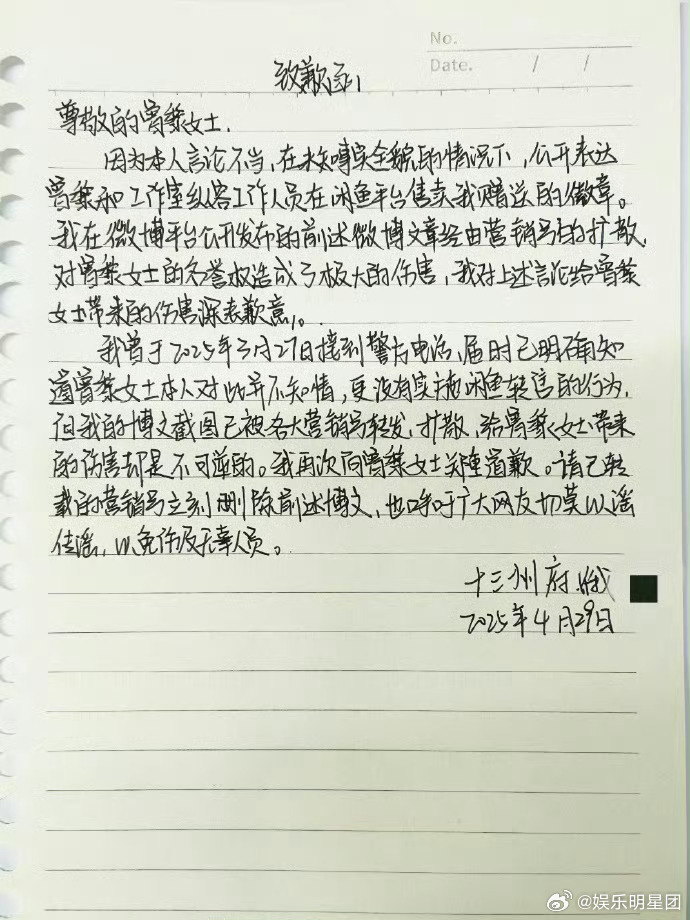 No.
Date. / /
致歉函
尊敬的曾黎女士.
因为本人言论不当,在未知哮实全貌的情况下,公开表达
曾黎和工作室纵容工作人员在闲鱼平台售卖我赠送的徽章。
我在微博平台公开发布的前述微博文章经由营销号的扩散,
对曾黎女士的名誉权造成了极大的伤害,我对上述言论给曾黎
女士带来的伤害深表歉意。
我曾于2025年3月27日接到警方电话,届时已明确知
道曾黎女士本人对此并不知情,更没有实施闲鱼转售的行为,
但我的博文截图已被各大营销号转发、扩散,给曾黎女士带来
的伤害却是不可逆的。我再次向曾黎女士郑重道歉。请已转
载的营销号立刻删除前述博文,也呼吁广大网友切莫以谣
传谣,以免伤及无辜人员。
十三州府
2025年4月29日
@娱乐明星团